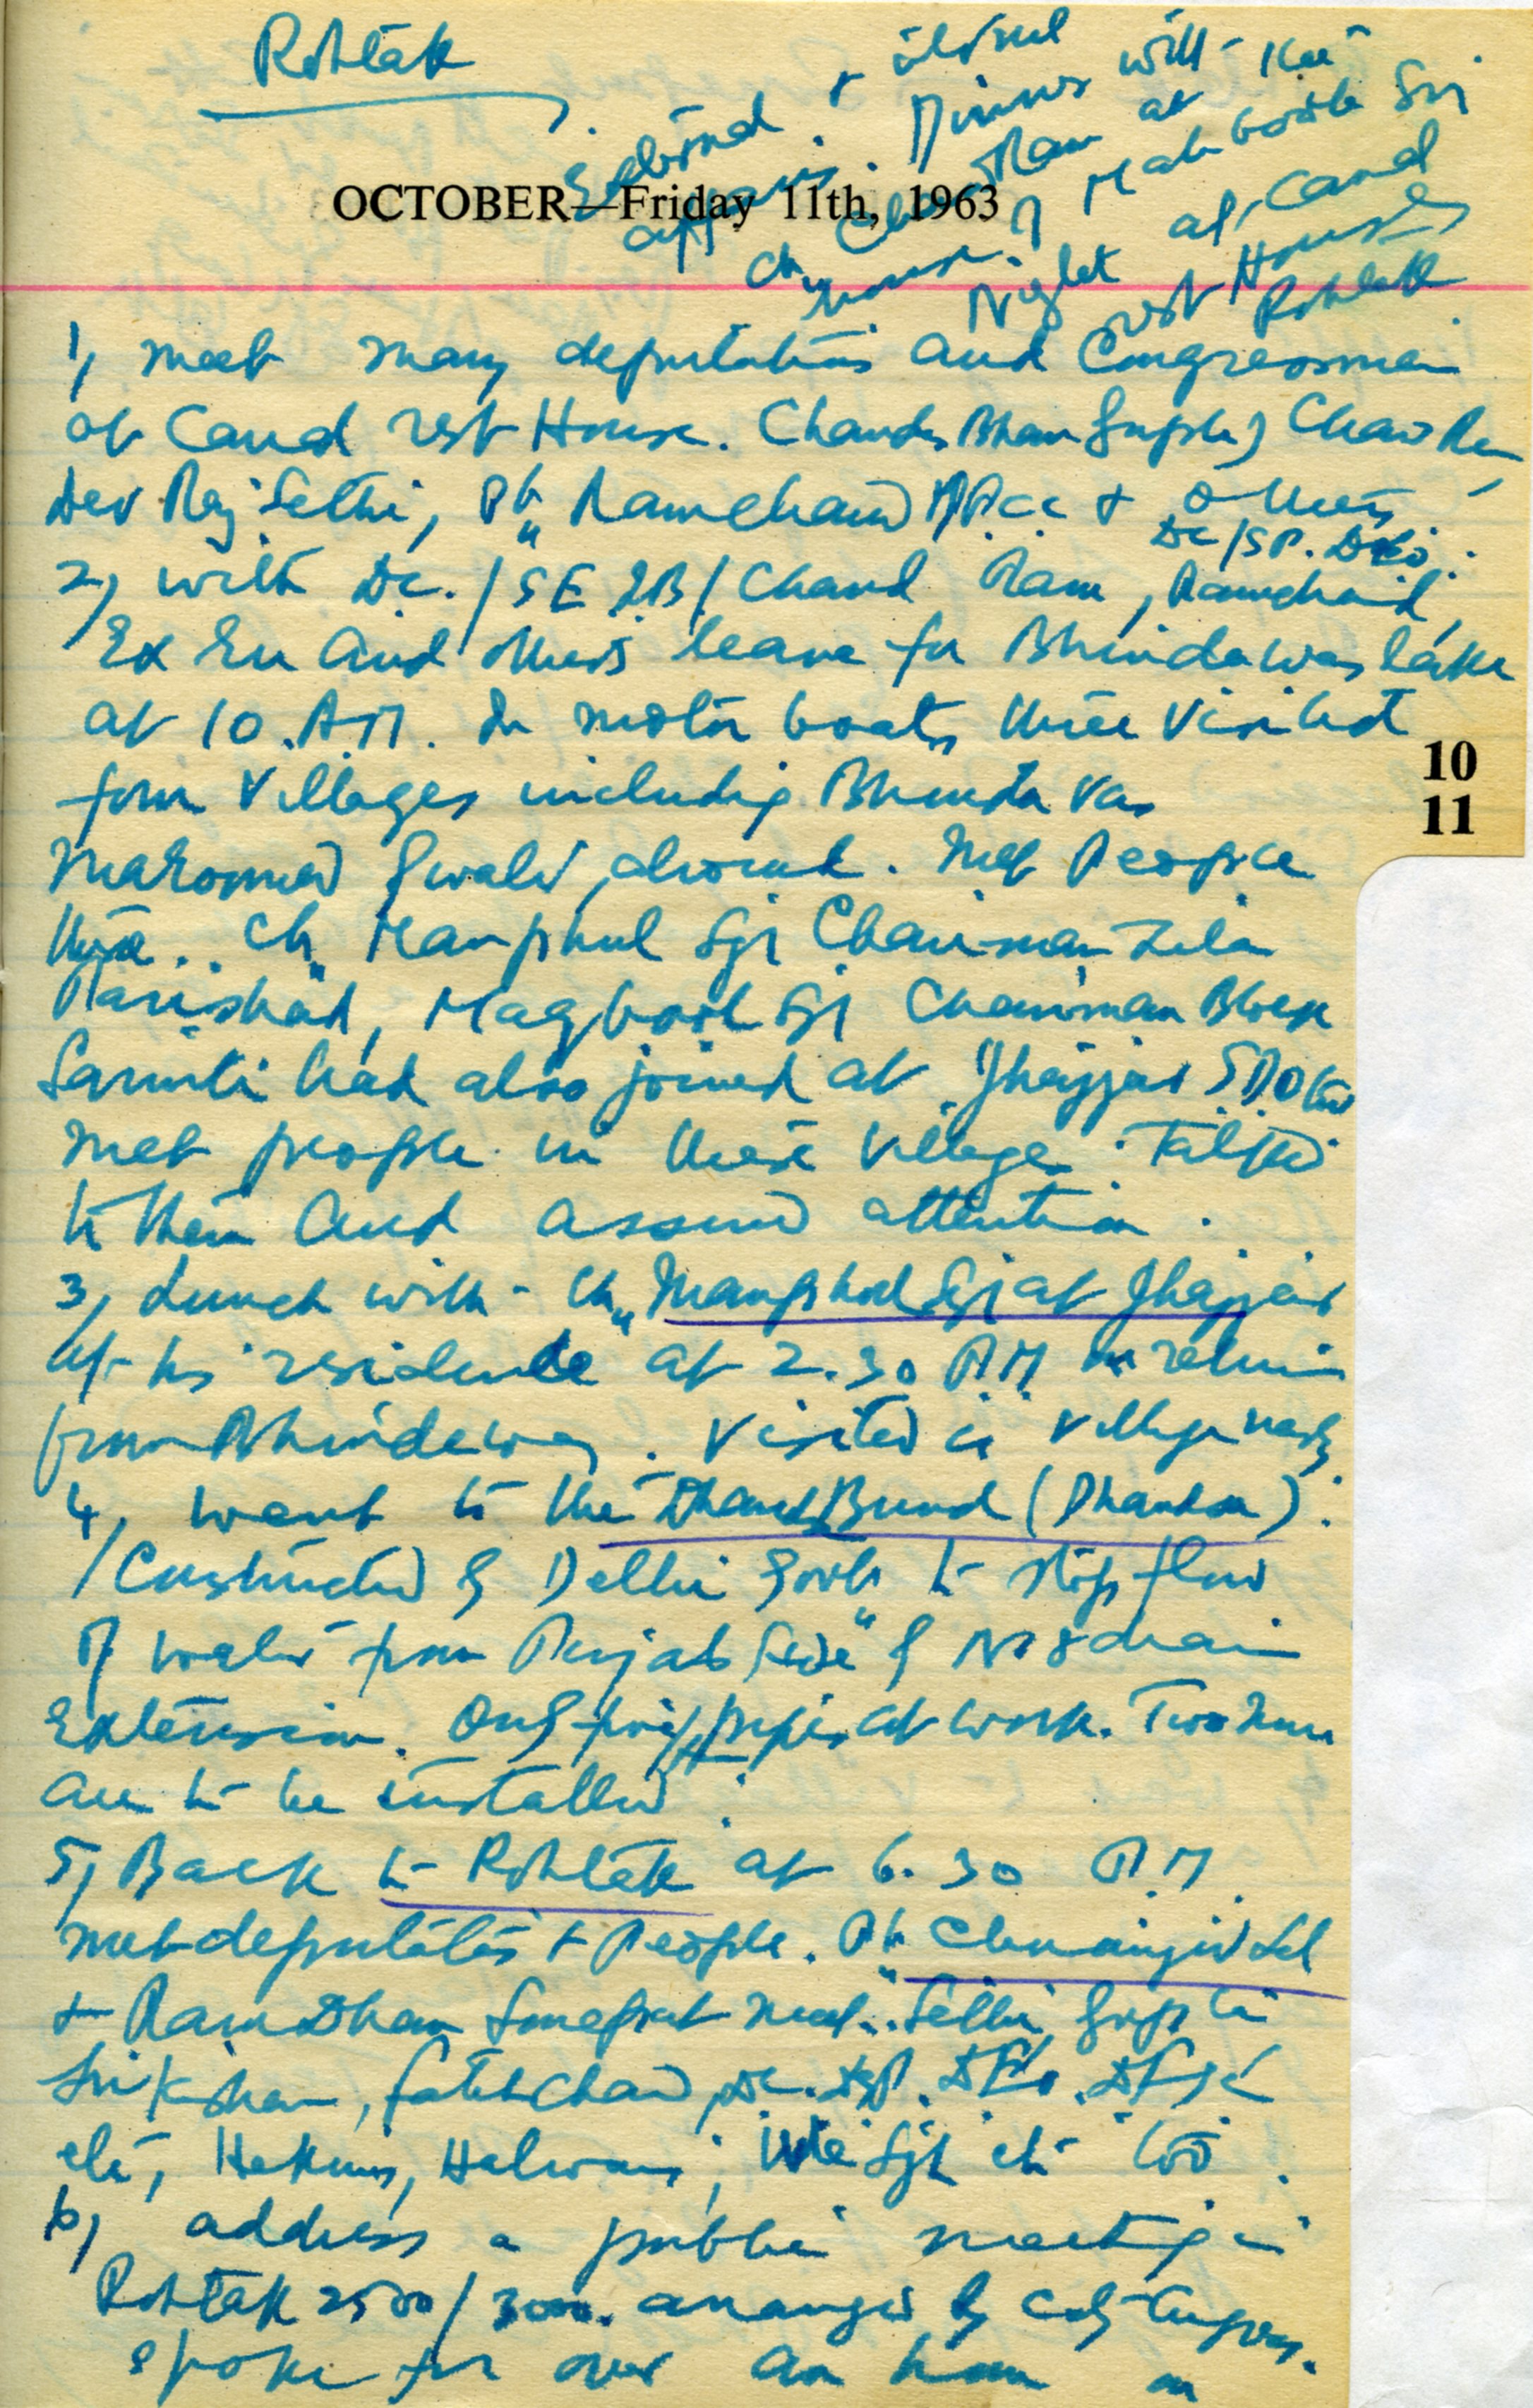 Rohtak
External & internal
affairs. Dinner with
Ch. Chand Ram at
house of Mahboob Sri
Night at Canal
rest House
Rohtak
OCTOBER—Friday 11th, 1963
1, meet many deputations and Congressmen
at Canal rest House. Chander Bhan Gupta,
Dev Raj Sethi, Pt. Ramchand & others
DC/SP.
2, with DC./SE IB/Chand Ram, Ramchand,
Ex En and others leave for Bhindawas lake
at 10.A.M. In motor boats there visited
four villages including Bhindavas
Marooned water around. Met People
there. Ch. Manphul Sgr Chairman Zila
Parishad, Maqbool Sgr Chairman Block
Samiti had also joined at Jhajjar SDO
met people in these villages. Talked
to them and assured attention.
3, Lunch with Ch. Manphul Sgr at Jhajjar
at his residence at 2.30 PM on return
from Bhindawas. Visited village
4, went to the Dhansa Bund (Dhansa).
/Constructed by Delhi Govt. to stop flow
of water from Punjab side of No 8 drain
Extension. Only pumps at work. Two more
are to be installed.
5, Back to Rohtak at 6.30 P.M.
met deputations & People. Pt. Chiranji Lal
& Ram Dhan Sonepat met. Sethi, Gupta
Sri Kishan, Fateh Chand, DC.
etc, Hakims, Halwais, etc too.
6, address a public meeting in
Rohtak 2500/3000. arranged by City Congress.
spoke for over an hour on
10
11